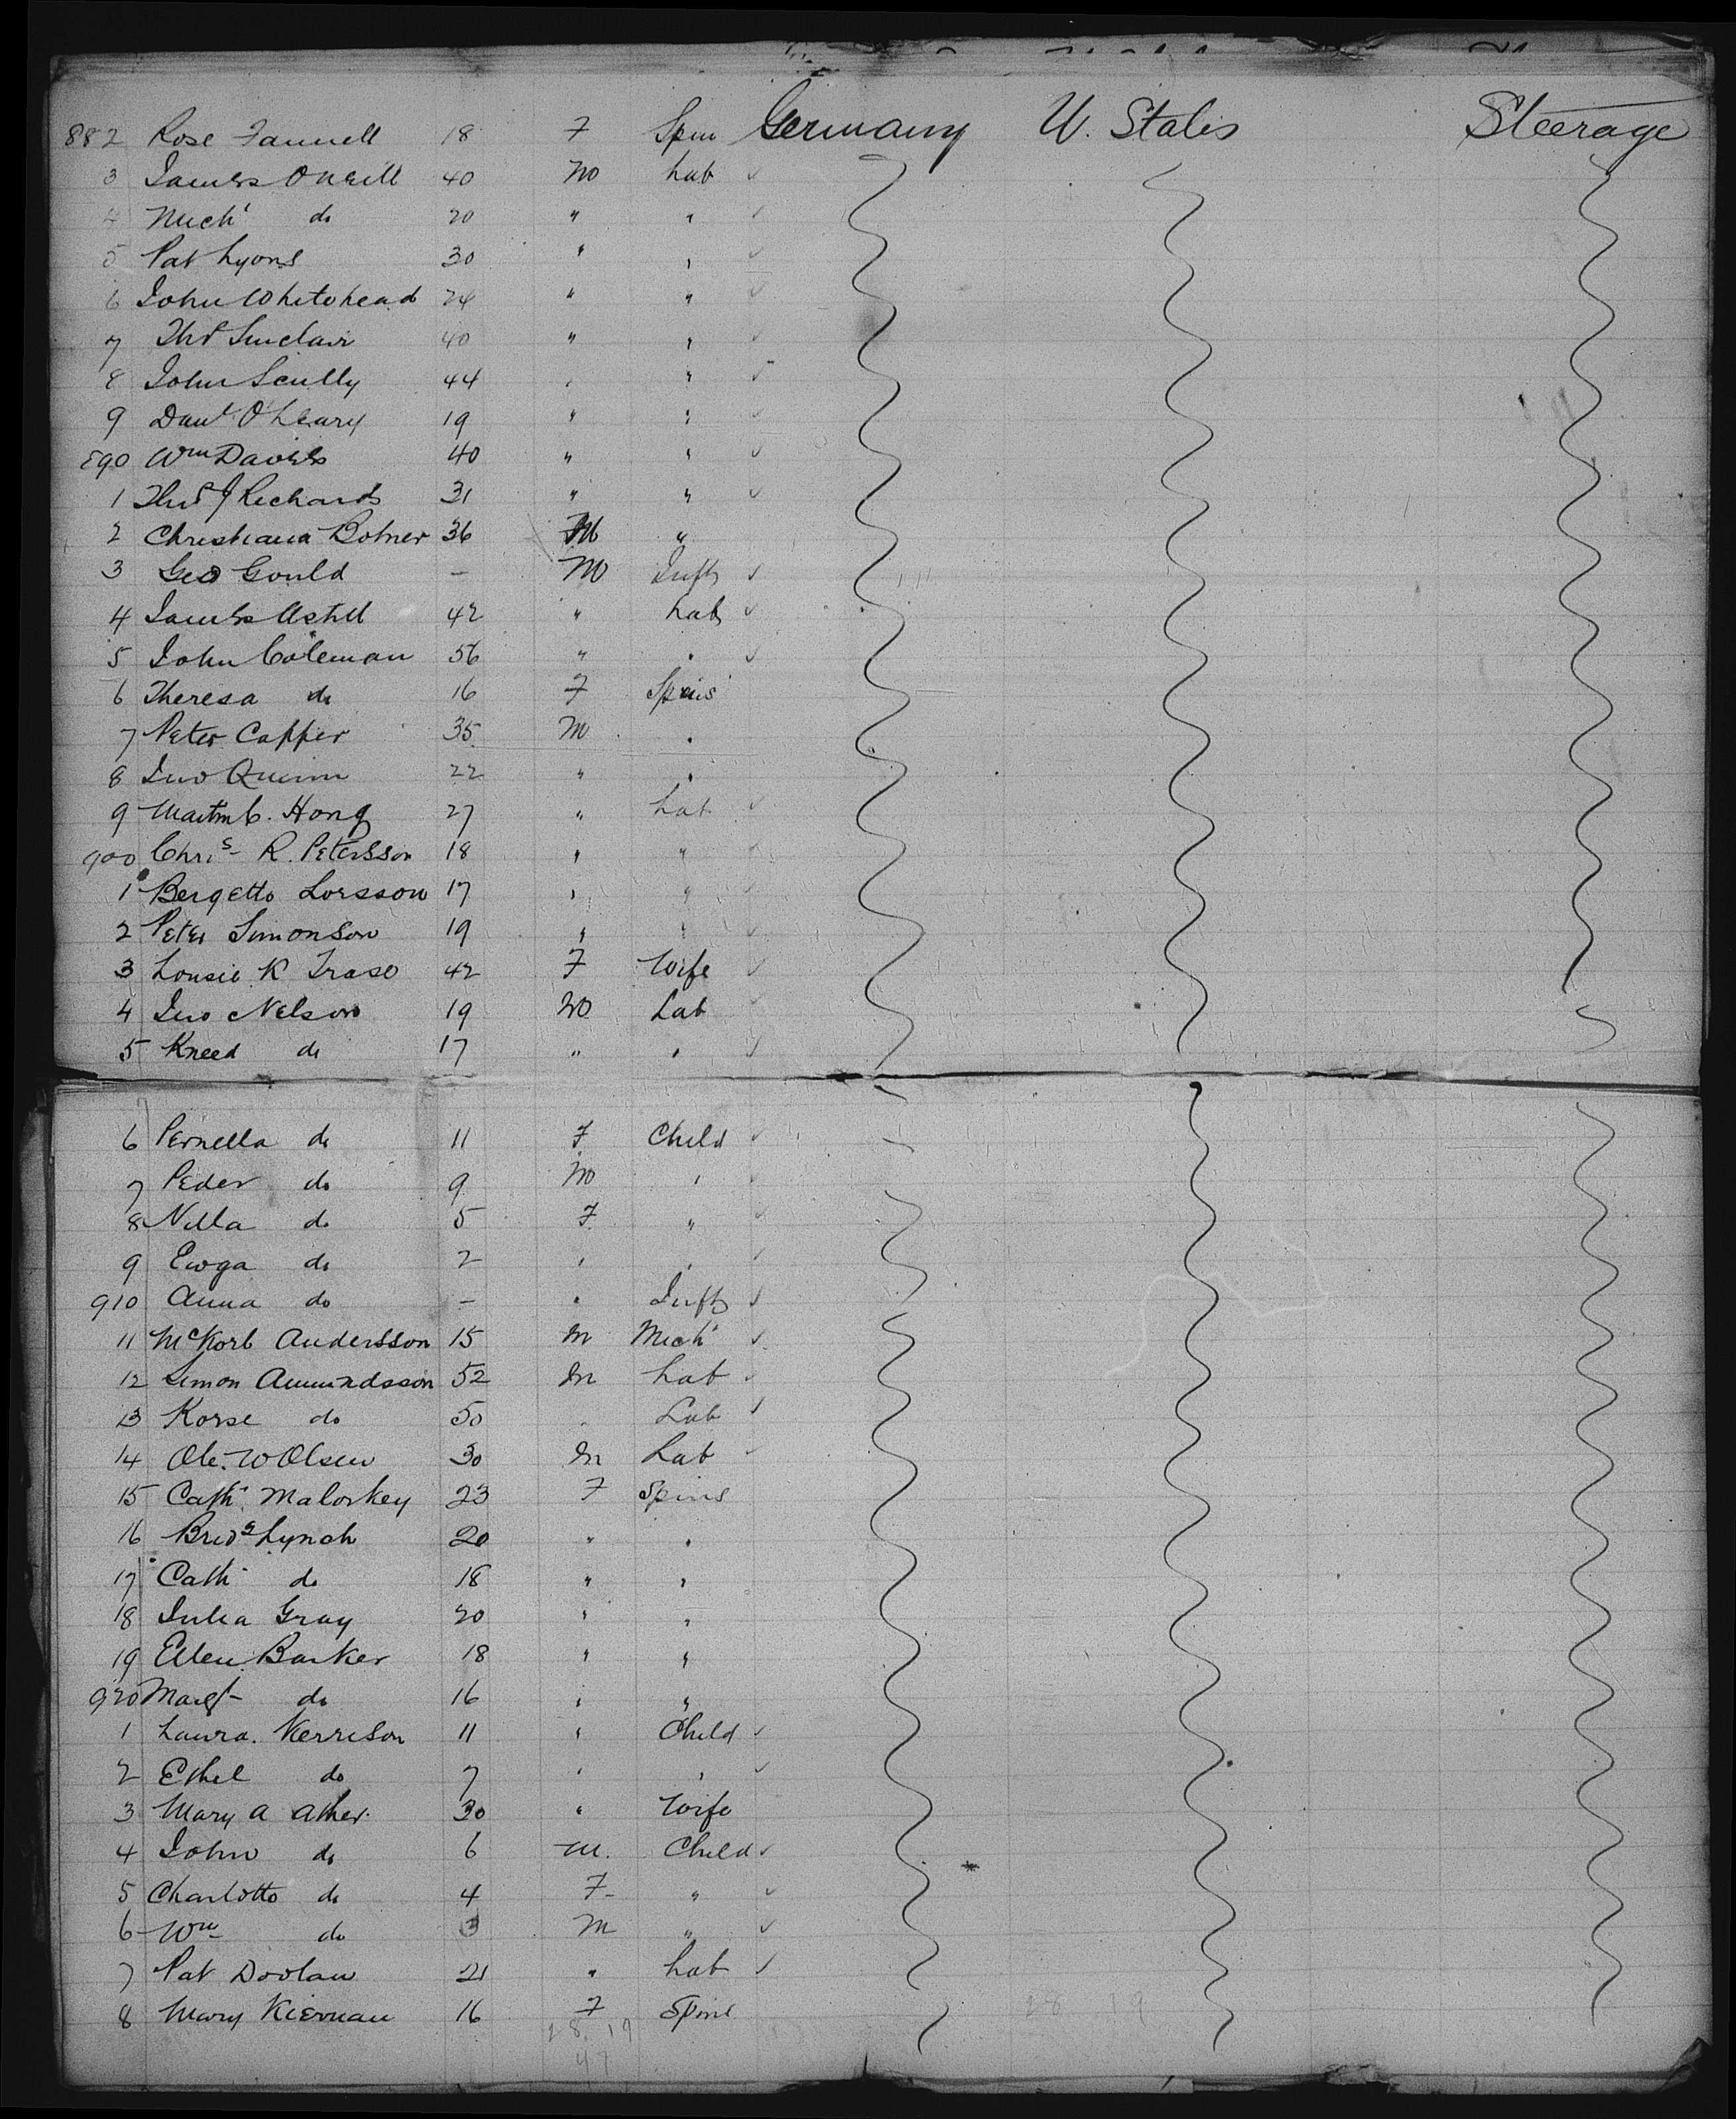 882 Rose Fannell 18 F Spin Germany U. States Steerage
3 James O'Neill 40 M Lab
4 Mich' do 20 " "
5 Pat Lyons 30 " "
6 John Whitehead 24 " "
7 Thos Sinclair 40 " "
8 John Scully 44 " "
9 Danl O'Leary 19 " "
890 Wm Davies 40 " "
1 Thos J Richards 31 " "
2 Christiana Botner 36 M "
3 Geo Gould - M Inft
4 James Astell 42 " Lab
5 John Coleman 56 " "
6 Theresa do 16 F Spins
7 Peter Capper 35 M "
8 Jno Quinn 22 " "
9 Martin C. Hong 27 " Lab
900 Chris R. Petersson 18 " "
1 Bergetto Lorsson 17 " "
2 Peter Simonson 19 " "
3 Lousie K Traso 42 F Wife
4 Jno Nelson 19 M Lab
5 Kneed do 17 " "
6 Pernella do 11 F Child
7 Peder do 9 M "
8 Nilla do 5 F "
9 Ewga do 2 " "
910 Anna do - " Inft
11 McKorb Andersson 15 M Mech
12 Simon Amundsson 52 M Lab
13 Korse do 50 Lab
14 Ole. W Olsen 30 M Lab
15 Cath Maloskey 23 F Spins
16 Bridg Lynch 20 " "
17 Cath do 18 " "
18 Julia Gray 20 " "
19 Ellen Barker 18 " "
920 Margt do 16 " "
1 Laura. Kerrison 11 " Child
2 Ethel do 7 " "
3 Mary A Ather 30 " Wife
4 John do 6 M. Child
5 Charlotte do 4 F "
6 Wm do 3 M "
7 Pat Doolan 21 " Lab
8 Mary Kiernan 16 F Spins
28 19 28 19
47